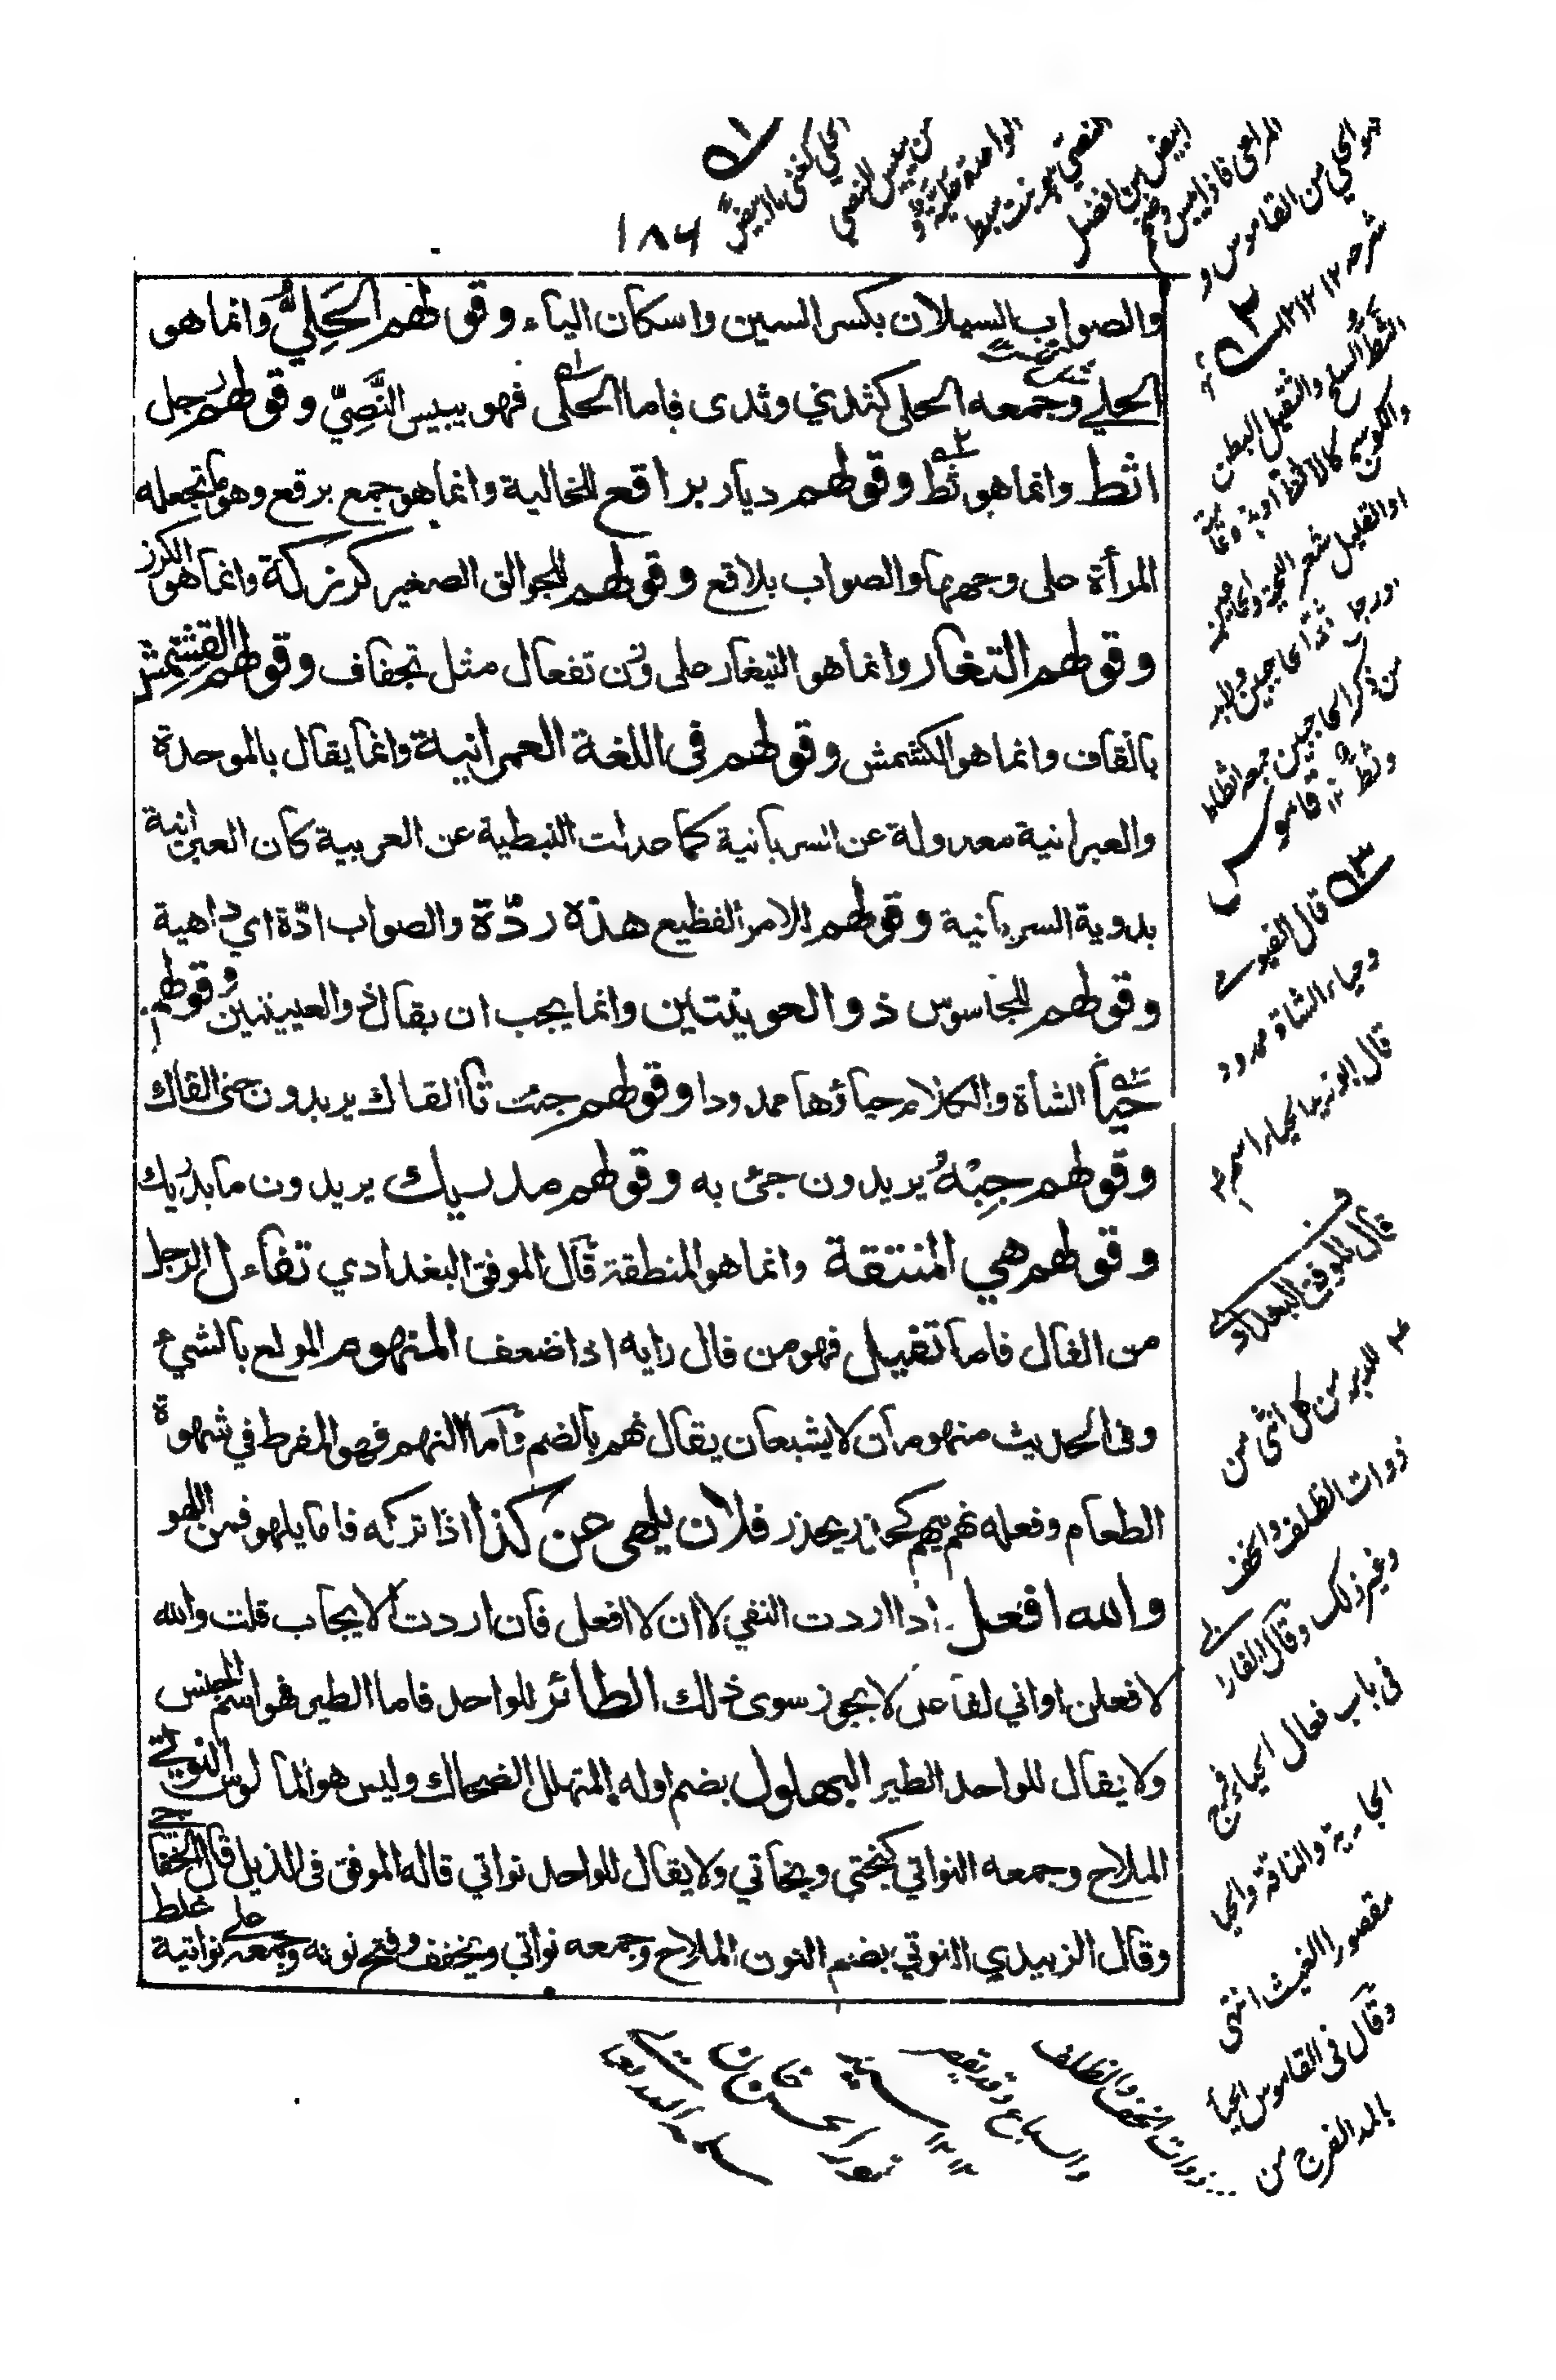 ١٨٦
والصواب السيلان بكسر السين واسكان الياء وقولهم الحَلِيُّ وانما هو
الحلي وجمعه الحلي كثدي وثدي فاما الحلى فهو يبيس النَّصِيّ وقولهم رجل
اثط وانما هو ثط وقولهم ديار براقع للخالية وانما هو جمع برقع وهو ما تجعله
المرأة على وجهها والصواب بلاقع وقولهم للجوالق الصغير كرزكة وانما هو الكرز
وقولهم التغار وانما هو التيغار على وزن تفعال مثل تجفاف وقولهم القشمش
بالقاف وانما هو الكشمش وقولهم في اللغة العمرانية وانما يقال بالموحدة
والعبرانية معدولة عن السريانية كما عدلت النبطية عن العربية كان العبرانية
بدوية السريانية وقولهم للامر الفظيع هذه ردّة والصواب ادّة اي داهية
وقولهم للجاسوس ذو العوينتين وانما يجب ان يقال ذو العيينتين وقولهم
حيا الشاة والكلام حياؤها ممدودا وقولهم جئت تا القاك يريدون حتى القاك
وقولهم جِبْهُ يريدون جئ به وقولهم مدريك يريدون ما يدريك
وقولهم هي المنتقة وانما هو المنطقة قال الموفق البغدادي تفاءل الرجل
من الفال فاما تفيل فهو من فال رايه اذا ضعف المنهوم المولع بالشيء
وفي الحديث منهومان لا يشبعان يقال نهم بالضم فاما النهم فهو المفرط في شهوة
الطعام وفعله نهم ينهم كحذر يحذر فلان يلهى عن كذا اذا تركه فاما يلهو فمن اللهو
والله افعل اذا اردت النفي لا ان لا افعل فان اردت الايجاب قلت والله
لافعلن او اني لفاعل لا يجوز سوى ذلك الطائر للواحد فاما الطير فهو اسم الجنس
ولا يقال للواحد الطير البهلول بضم اوله المتهلل الضحاك وليس هو المالوس النوتي
الملاح وجمعه النواتي كبختي وبخاتي ولا يقال للواحد نواتي قاله الموفق في الذيل قال الخفاجي
وقال الزبيدي النوتي بضم النون الملاح وجمعه نواتي ويخفف وفتح نونه وجمعه على نواتية غلط
هو الحلي من القاموس و
شرحه
الثط السلح والثقيل البطن
والكوسج كالاثط
او القليل شعر اللحية والحاجبين
من ذكر الحاجبين جمعه اثطاط
قاموس
قال الفيومي
وحياء الشاة ممدود
قال ابو زيد الحياء اسم
قال الموفق البغدادي
للدبر من كل انثى من
ذوات الظلف والخف
وغير ذلك وقال الفارابي
في باب فعال الحياء فرج
الجارية والناقة والحيا
مقصورا الغيث انتهى
وقال في القاموس الحياء
بالمد الفرج من
ذوات الخف والظلف
والسباع وقد يقصر